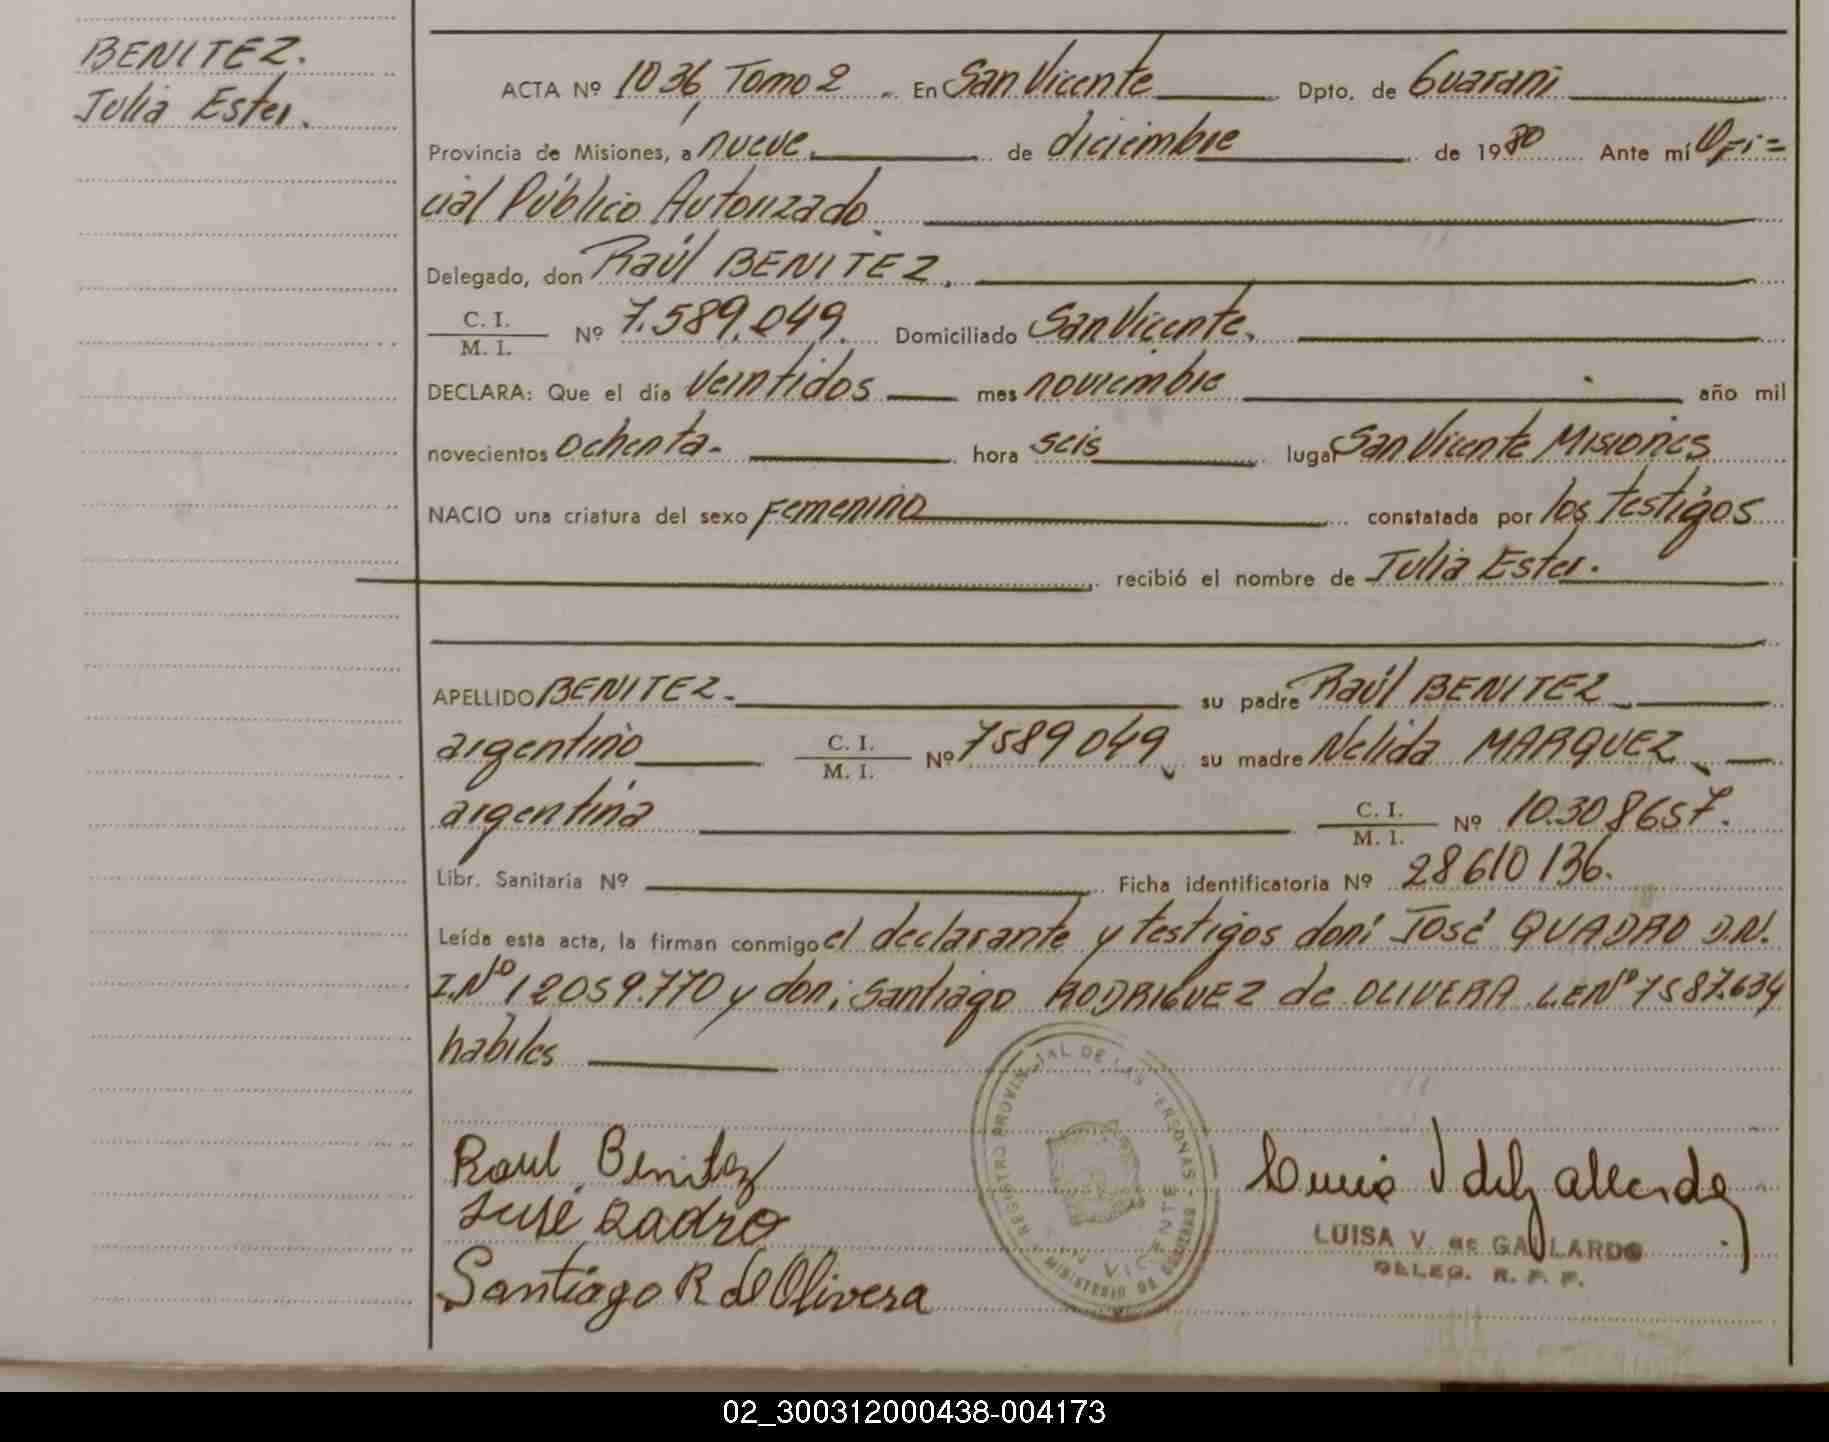 BENITEZ.
Julia Ester.
ACTA Nº 1036, Tomo 2. En San Vicente Dpto. de Guaraní
Provincia de Misiones, a nueve de diciembre de 1980 Ante mí Ofi=
cial Público Autorizado.
Delegado, don Raúl BENITEZ.
C. I.
M. I. Nº 7.589.049. Domiciliado San Vicente.
DECLARA: Que el día veintidos mes noviembre año mil
novecientos ochenta. hora seis lugar San Vicente Misiones
NACIO una criatura del sexo Femenino constatada por los testigos
recibió el nombre de Julia Ester.
APELLIDO BENITEZ. su padre Raúl BENITEZ
argentino C. I.
M. I. Nº 7589049 su madre Nelida MARQUEZ
argentina C. I.
M. I. Nº 10.308657.
Libr. Sanitaria Nº Ficha identificatoria Nº 28610136.
Leída esta acta, la firman conmigo el declarante y testigos don: José QUADRO D.N.
I.Nº 12059.770 y don; Santiago RODRIGUEZ de OLIVERA L.E Nº 7587.634
habiles
Raul Benitez
José Qadro
Santiago R de Olivera
REGISTRO PROVINCIAL DE LAS PERSONAS
VICENTE
LUISA V. de GALLARDO
DELEG. R. P. P.
02_300312000438-004173